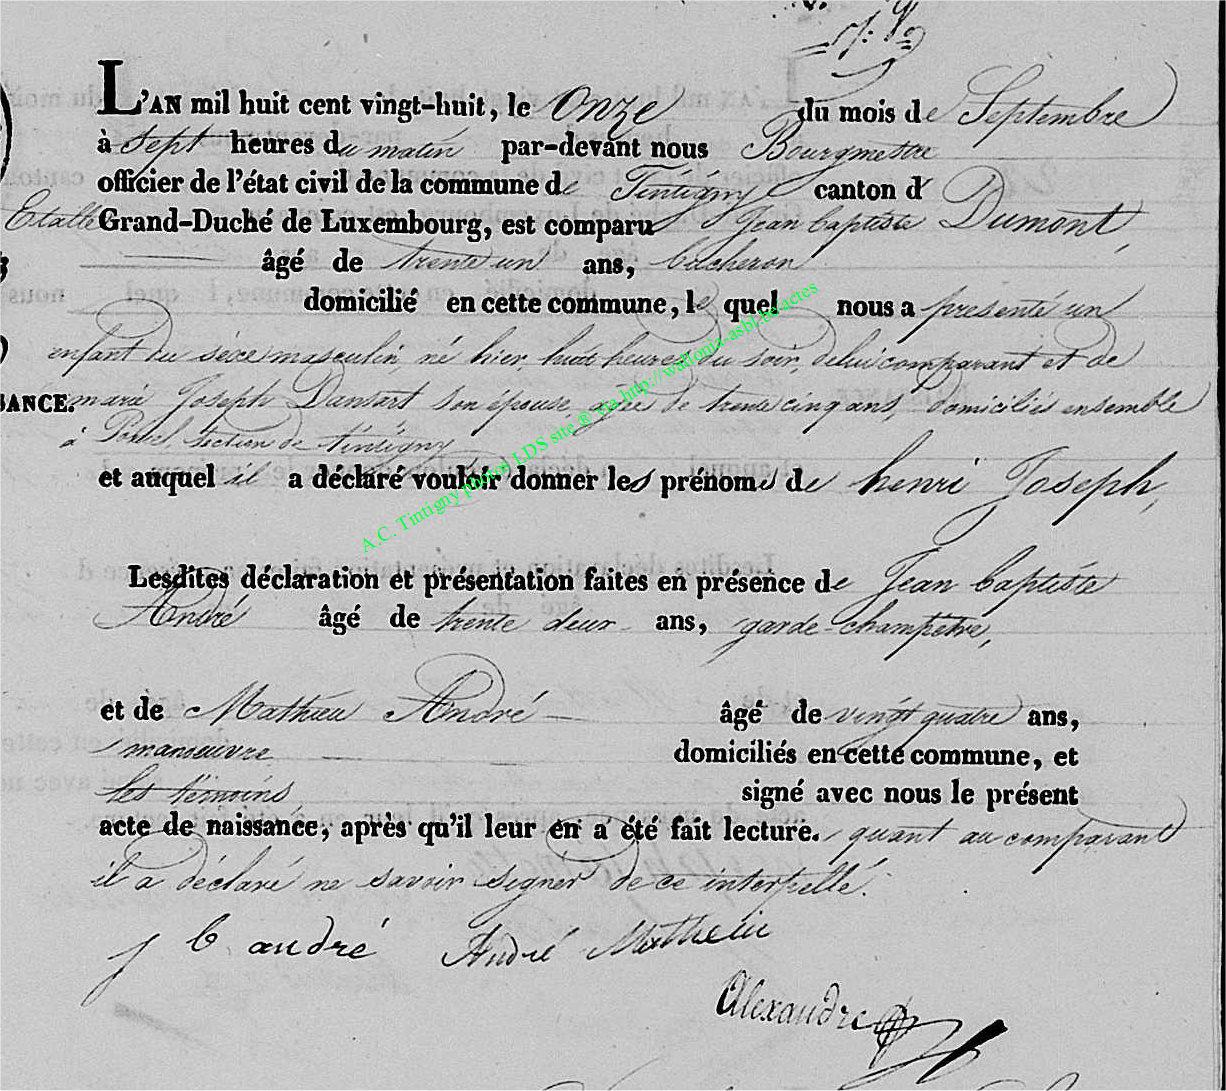 L'AN mil huit cent vingt-huit, le Onze du mois de Septembre
à sept heures du matin par-devant nous Bourgmestre
officier de l'état civil de la commune de Tintigny canton d'
Etalle Grand-Duché de Luxembourg, est comparu Jean baptiste Dumont,
âgé de trente un ans, bucheron
domicilié en cette commune, lequel nous a presenté un
enfant du sèxe masculin né hier, huit heures du soir, de lui comparant et de
SANCE. marie Joseph Dansart son épouse, agée de trente cinq ans, domiciliés ensemble
à section de tintigny
et auquel il a déclaré vouloir donner les prénoms de henri Joseph,
Lesdites déclaration et présentation faites en présence de Jean baptiste
André âgé de trente deux ans, garde-champètre,
et de Mathieu André âgé de vingt quatre ans,
manoeuvre domiciliés en cette commune, et
les témoins signé avec nous le présent
acte de naissance, après qu'il leur en a été fait lecture. quant au comparant
il a déclaré ne savoir signer de ce interpellé.
j b andré André Mathieu
Alexandre
A.C. Tintigny photos LDS site ® via http://wallonia-asbl.be/actes